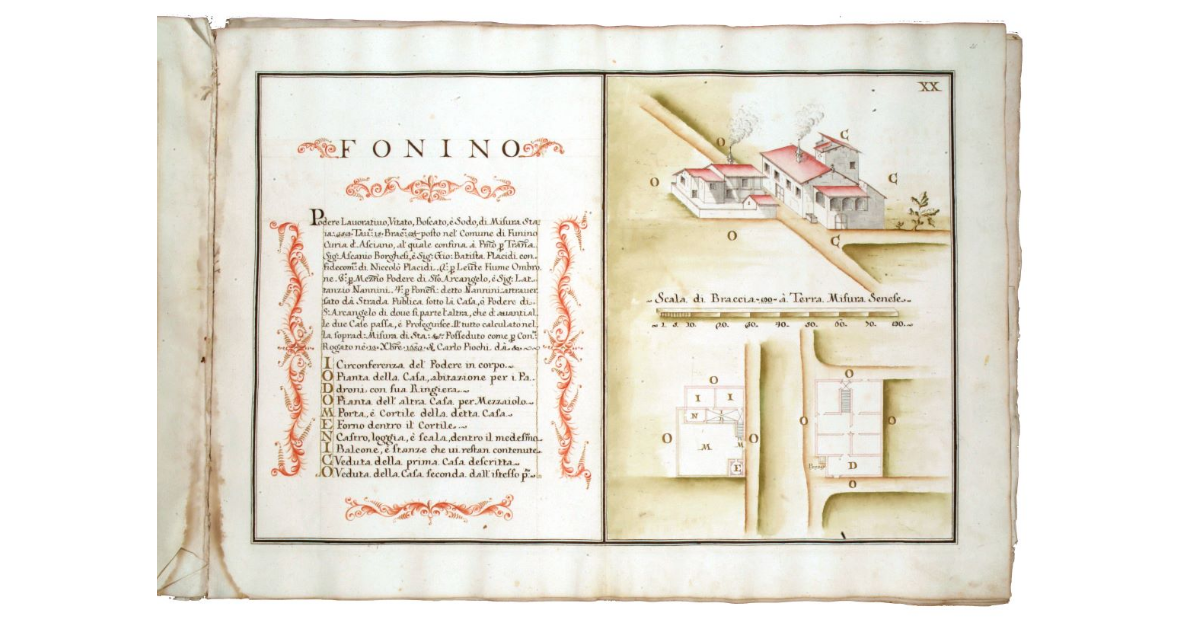 FONINO
Podere Lauoratiuo, Vitato, Boscato, è Sodo, di Misura Sta:
posto nel Comune di Funino
Curia d'Asciano, al quale confina à
Sig: Ascanio Borghesi, è Sig: Gio: Batista Placidi con
fidecom: di Niccolò Placidi. Fiume Ombro,
ne. Podere di Sto Arcangelo, è Sig: Lat:
tanzio Nannini. detto Nannini attrauer
sato dà Strada Publica sotto la Casa, ò Podere di
St: Arcangelo di doue si parte l'altra, che d'auanti al,
le due Case passa, è Proseguisce. Il tutto calcolato nel
la soprad: Misura di Sta: Posseduto come p Con:
Rogato Carlo Piochi. d.
I Circonferenza del Podere in corpo.
O Pianta della Casa, abitazione per i Pa,
D droni, con sua Ringiera.
O Pianta dell'altra Casa per Mezzaiolo.
M Porta, è Cortile della detta Casa.
E Forno dentro il Cortile.
N Castro, loggia, è scala, dentro il medesmo.
I Balcone, è stanze che ui restan contenute.
C Veduta della prima Casa descritta.
O Veduta della Casa seconda dall'istesso p.
XX
O C
O C
O C
Scala di Braccia 100 à Terra Misura Senese.
1. 5. 10. 20. 30. 40. 50. 60. 70. 100.
O O
I I
N
O O O O
M
E D
O